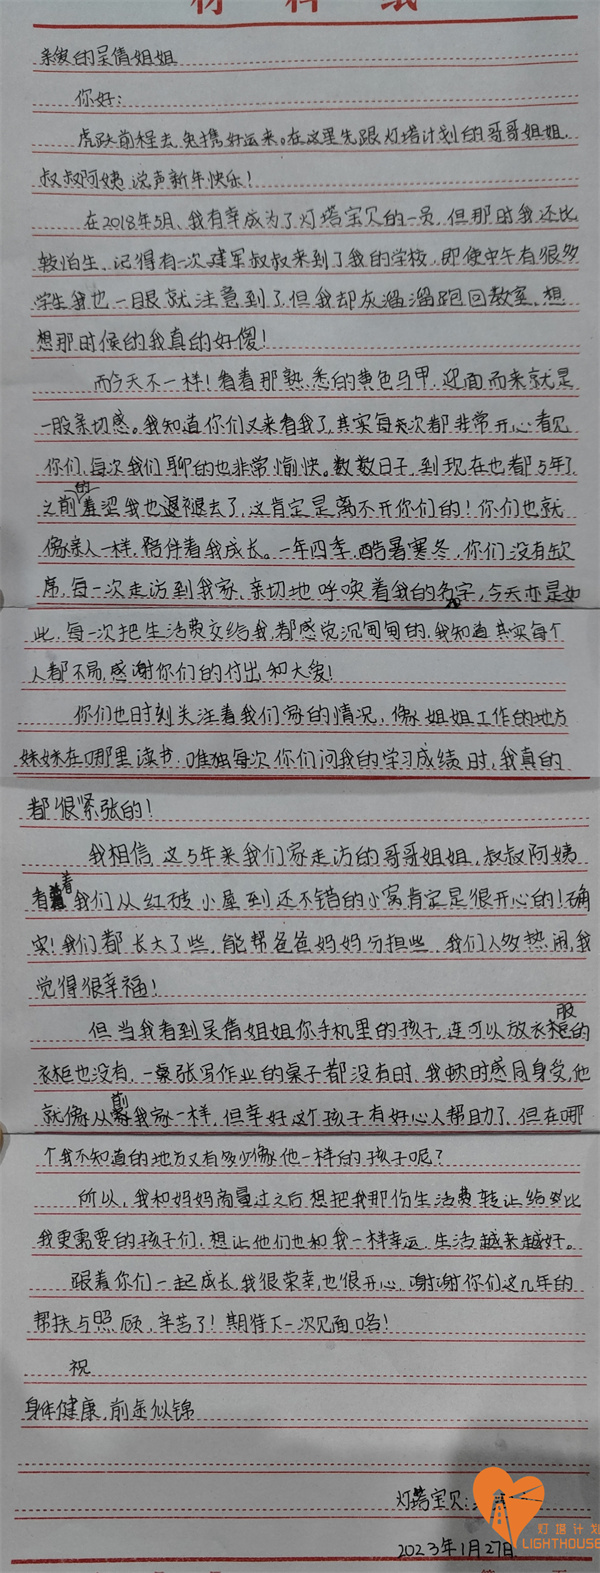 材料纸
亲爱的吴倩姐姐
你好:
虎跃前程去,兔携好运来。在这里先跟灯塔计划的哥哥姐姐、
叔叔阿姨说声新年快乐!
在2018年5月、我有幸成为了灯塔宝贝的一员,但那时我还比
较怕生、记得有一次建军叔叔来到了我的学校,即使中午有很多
学生我也一眼就注意到了,但我却灰溜溜跑回教室,想
想那时候的我真的好傻!
而今天不一样!看着那熟悉的黄色马甲,迎面而来就是
一股亲切感。我知道你们又来看我了,其实每次都非常开心看见
你们,每次我们聊的也非常愉快。数数日子,到现在也都5年了
之前的羞涩我也退褪去了,这肯定是离不开你们的!你们也就
像亲人一样,陪伴着我成长。一年四季,酷暑寒冬,你们没有缺
席,每一次走访到我家、亲切地呼唤着我的名字,今天亦是如
此,每一次把生活费交给我,都感觉沉甸甸的,我知道其实每个
人都不易,感谢你们的付出和大爱!
你们也时刻关注着我们家的情况,像姐姐工作的地方
妹妹在哪里读书,唯独每次你们问我的学习成绩时,我真的
都很紧张的!
我相信,这5年来我们家走访的哥哥姐姐,叔叔阿姨
看着我们从红砖小屋到还不错的小窝肯定是很开心的!确
实!我们都长大了些,能帮爸爸妈妈分担些,我们人多热闹,我
觉得很幸福!
但当我看到吴倩姐姐你手机里的孩子,连可以放衣服的
衣柜也没有,一张写作业的桌子都没有时,我顿时感同身受,他
就像从前我家一样,但幸好这个孩子有好心人帮助了,但在哪
个我不知道的地方又有多少像他一样的孩子呢?
所以,我和妈妈商量过之后想把我那份生活费转让给比
我更需要的孩子们,想让他们也和我一样幸运,生活越来越好。
跟着你们一起成长,我很荣幸,也很开心,谢谢你们这几年的
帮扶与照顾,辛苦了!期待下一次见面咯!
祝
身体健康,前途似锦
灯塔宝贝:
2023年1月27日
灯塔计划
LIGHTHOUSE